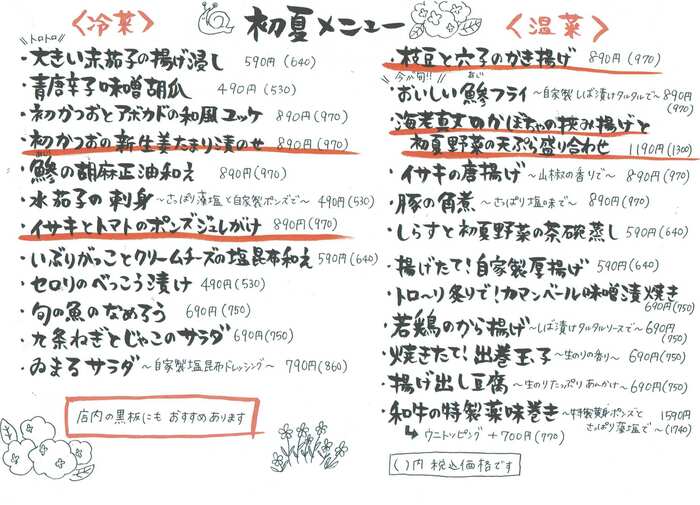 初夏メニュー
〈冷菜〉
トロトロ
・大きい赤茄子の揚げ浸し 590円(640)
・青唐辛子味噌胡瓜 490円(530)
・初かつおとアボカドの和風ユッケ 890円(970)
・初かつおの新生姜たまり漬のせ 890円(970)
・鯵の胡麻正油和え 890円(970)
・水茄子の刺身 ～さっぱり藻塩と自家製ポンズで～ 490円(530)
・イサキとトマトのポンズジュレがけ 890円(970)
・いぶりがっことクリームチーズの塩昆布和え 590円(640)
・セロリのべっこう漬け 490円(530)
・旬の魚のなめろう 690円(750)
・九条ねぎとじゃこのサラダ 690円(750)
・ゐまるサラダ ～自家製塩昆布ドレッシング～ 790円(860)
店内の黒板にも おすすめあります
〈温菜〉
・枝豆と穴子のかき揚げ 890円(970)
今が旬!! あじ
・おいしい鯵フライ ～自家製しば漬けタルタルで～ 890円
(970)
・海老真丈のかぼちゃの挟み揚げと
初夏野菜の天ぷら盛り合わせ 1190円(1300)
・イサキの唐揚げ ～山椒の香りで～ 890円(970)
・豚の角煮 ～さっぱり塩味で～ 890円(970)
・しらすと初夏野菜の茶碗蒸し 590円(640)
・揚げたて!自家製厚揚げ 590円(640)
・トロ～リ炙りで!カマンベール味噌漬焼き
690円(750)
・若鶏のから揚げ ～しば漬けタルタルソースで～ 690円
(750)
・焼きたて!出巻玉子 ～生のりの香り～ 690円(750)
・揚げ出し豆腐 ～生のりたっぷりあんかけ～ 690円(750)
・和牛の特製薬味巻き ～特製黄身ポンズと 1590円
さっぱり藻塩で～ (1740)
↳ウニトッピング +700円(770)
( )内 税込価格です